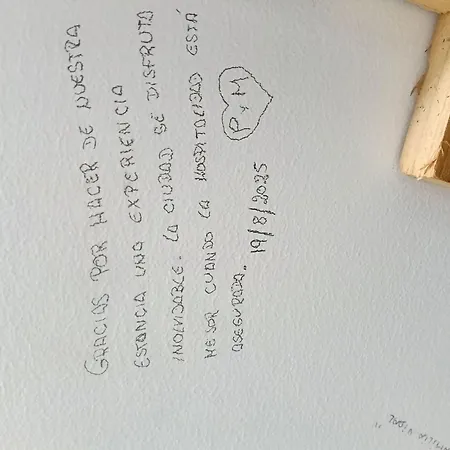 GRACIAS POR HACER DE NUESTRA
ESTANCIA UNA EXPERIENCIA
INOLVIDABLE. LA CIUDAD SE DISFRUTA
MEJOR CUANDO LA HOSPITALIDAD ESTÁ
ASEGURADA..
19/8/2025
P Y M